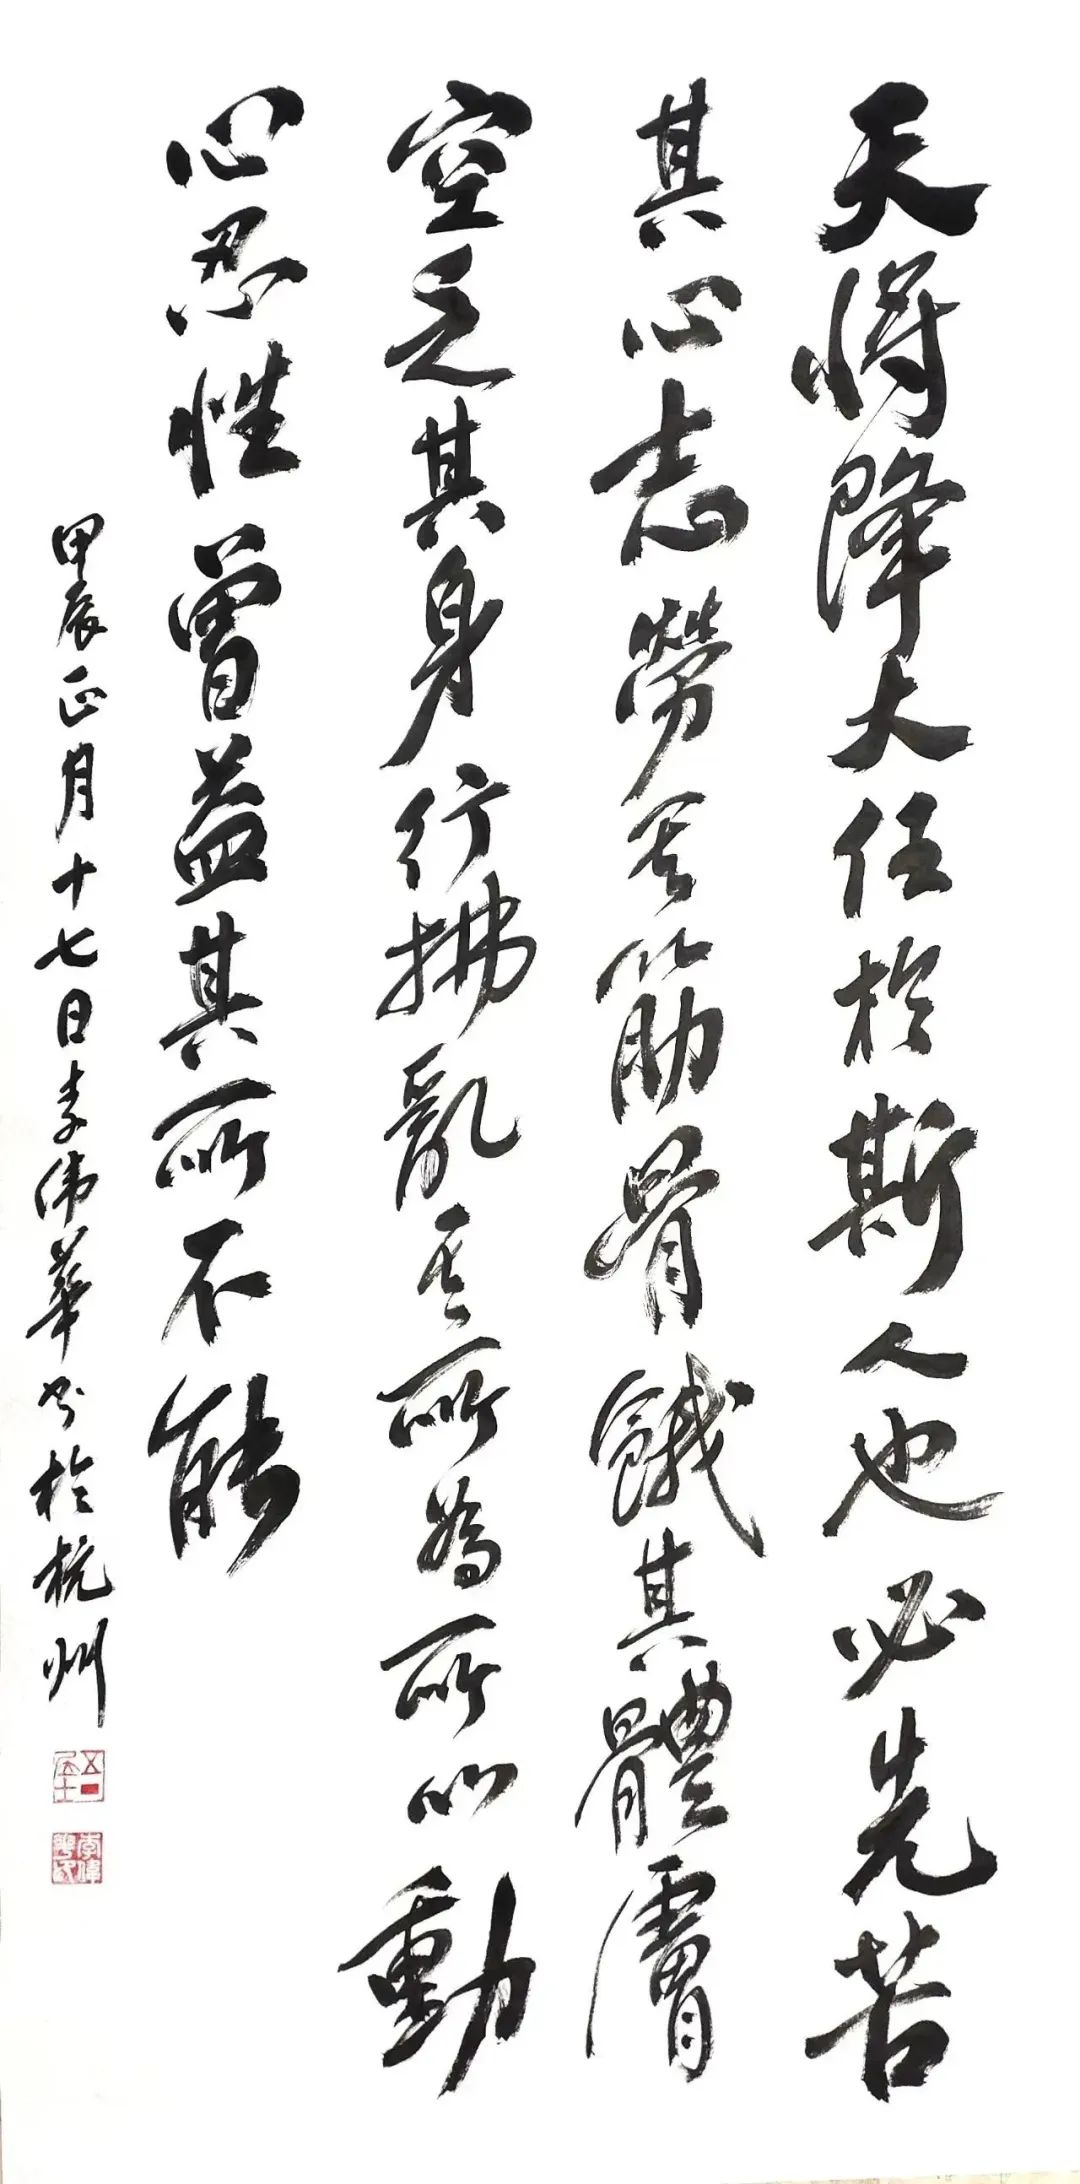 天將降大任於斯人也必先苦
其心志勞其筋骨餓其體膚
空乏其身行拂亂其所為所以動
心忍性曾益其所不能
甲辰正月十七日李偉華書於杭州